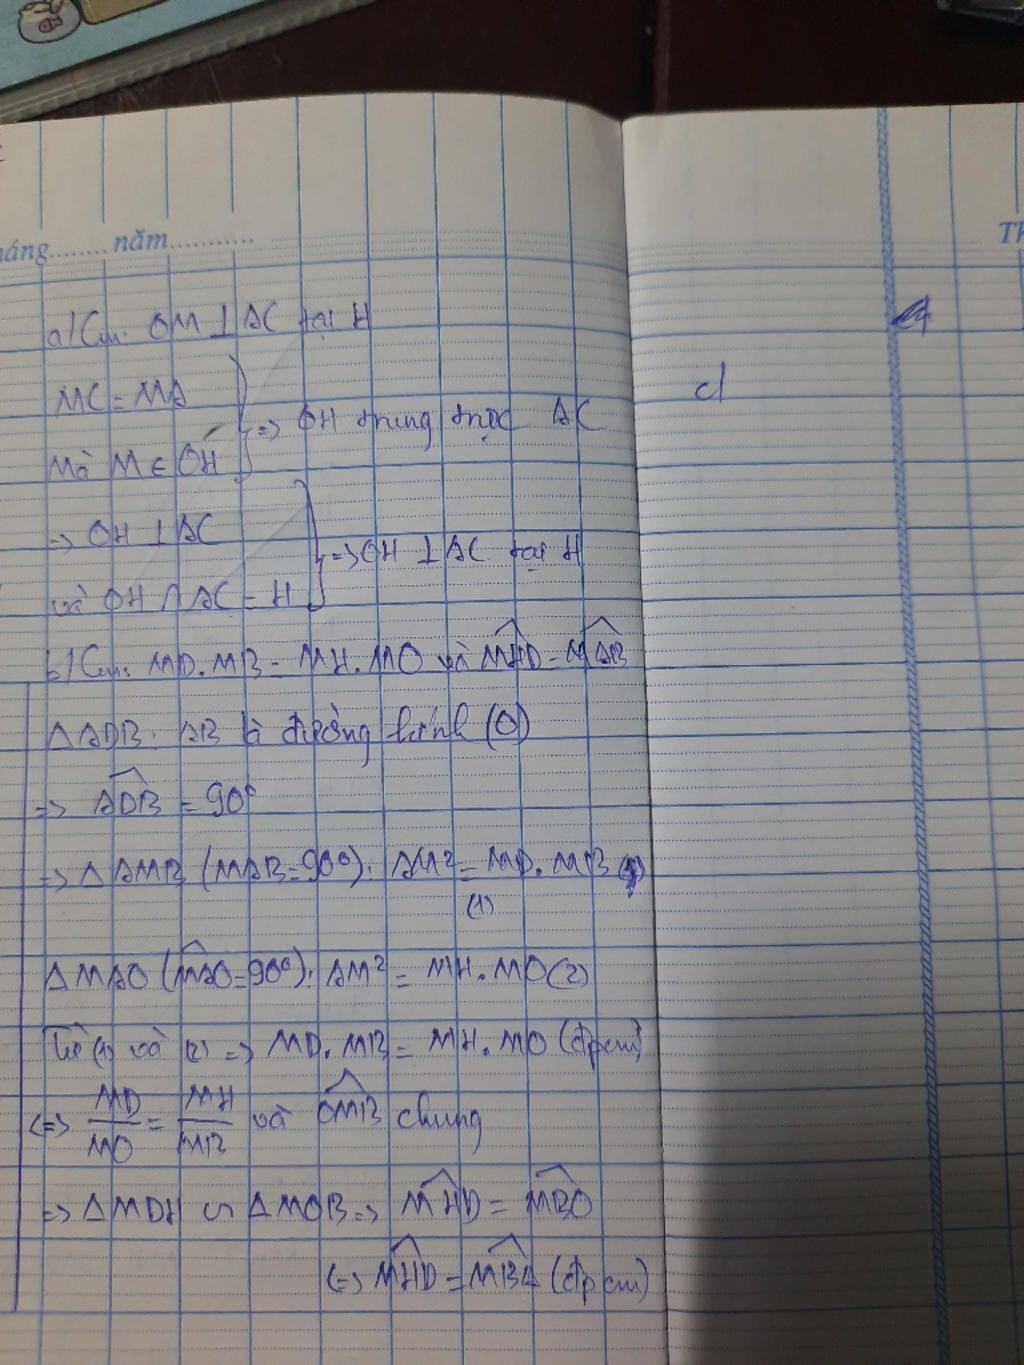 háng........ năm............
Th
a/ Cm: OM ⊥ AC tại H
MC = MA
Mà M ∈ OH
=> OH trung trực AC
=> OH ⊥ AC
và OH ∩ AC = H
=> OH ⊥ AC tại H
b/ Cm: MD.MB = MH.MO và MHD = MAB
ΔADB: AB là đường kính (O)
=> ADB = 90°
=> ΔAMB (MAB = 90°): AM² = MD.MB
(1)
ΔMAO (MAO = 90°): AM² = MH.MO (2)
Từ (1) và (2) => MD.MB = MH.MO (đpcm)
<=> MD/MO = MH/MB và OMB chung
=> ΔMDH ∽ ΔMOB => MHD = MBO
<=> MHD = MBA (đpcm)
d